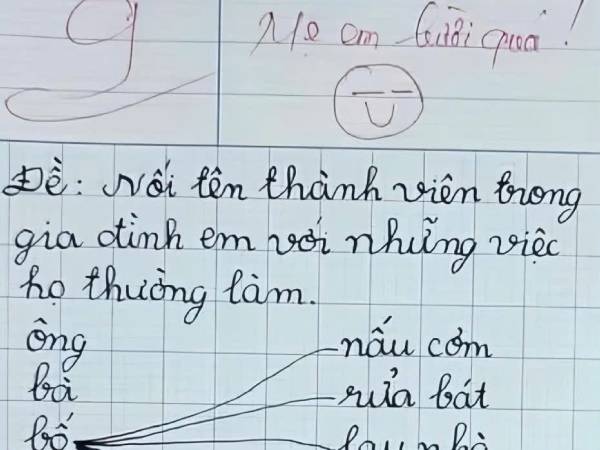 9
Mẹ em lười quá!
Đề: Nối tên thành viên trong
gia đình em với những việc
họ thường làm.
ông
nấu cơm
bà
rửa bát
bố
lau nhà